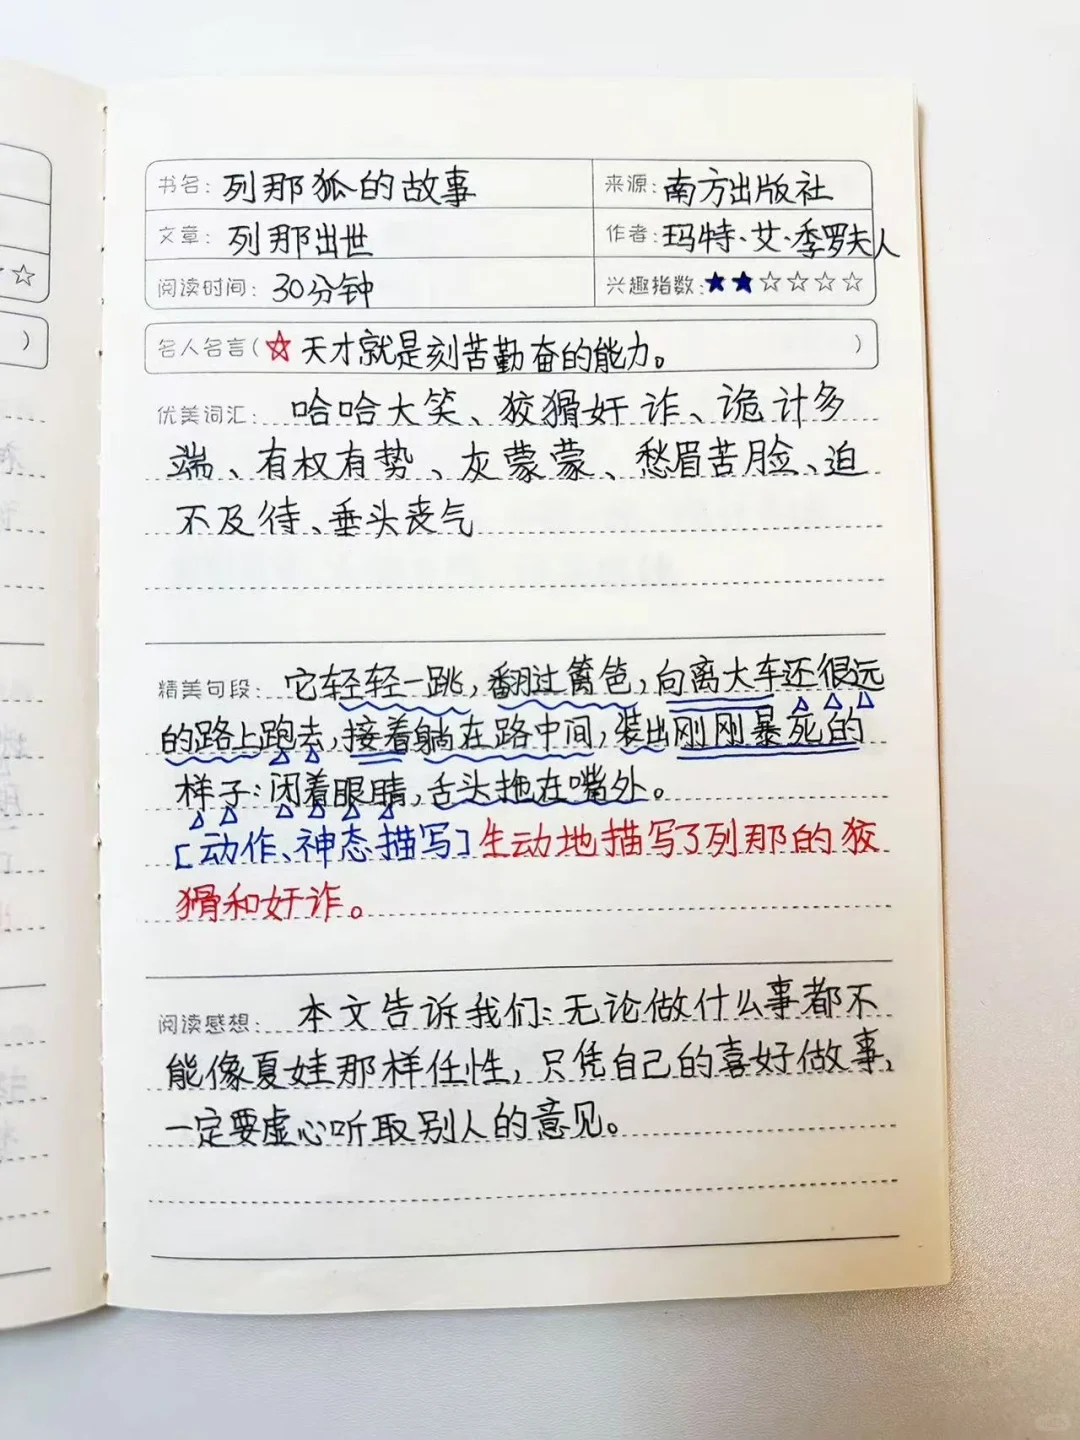 书名: 列那狐的故事 来源: 南方出版社
文章: 列那出世 作者: 玛特·艾·季罗夫人
阅读时间: 30分钟 兴趣指数: ★★☆☆☆☆
名人名言( ☆ 天才就是刻苦勤奋的能力。 )
优美词汇: 哈哈大笑、狡猾奸诈、诡计多
端、有权有势、灰蒙蒙、愁眉苦脸、迫
不及待、垂头丧气
精美句段: 它轻轻一跳,翻过篱笆,向离大车还很远
的路上跑去,接着躺在路中间,装出刚刚暴死的
样子:闭着眼睛,舌头拖在嘴外。
[动作、神态描写]生动地描写了列那的狡
猾和奸诈。
阅读感想: 本文告诉我们:无论做什么事都不
能像夏娃那样任性,只凭自己的喜好做事,
一定要虚心听取别人的意见。